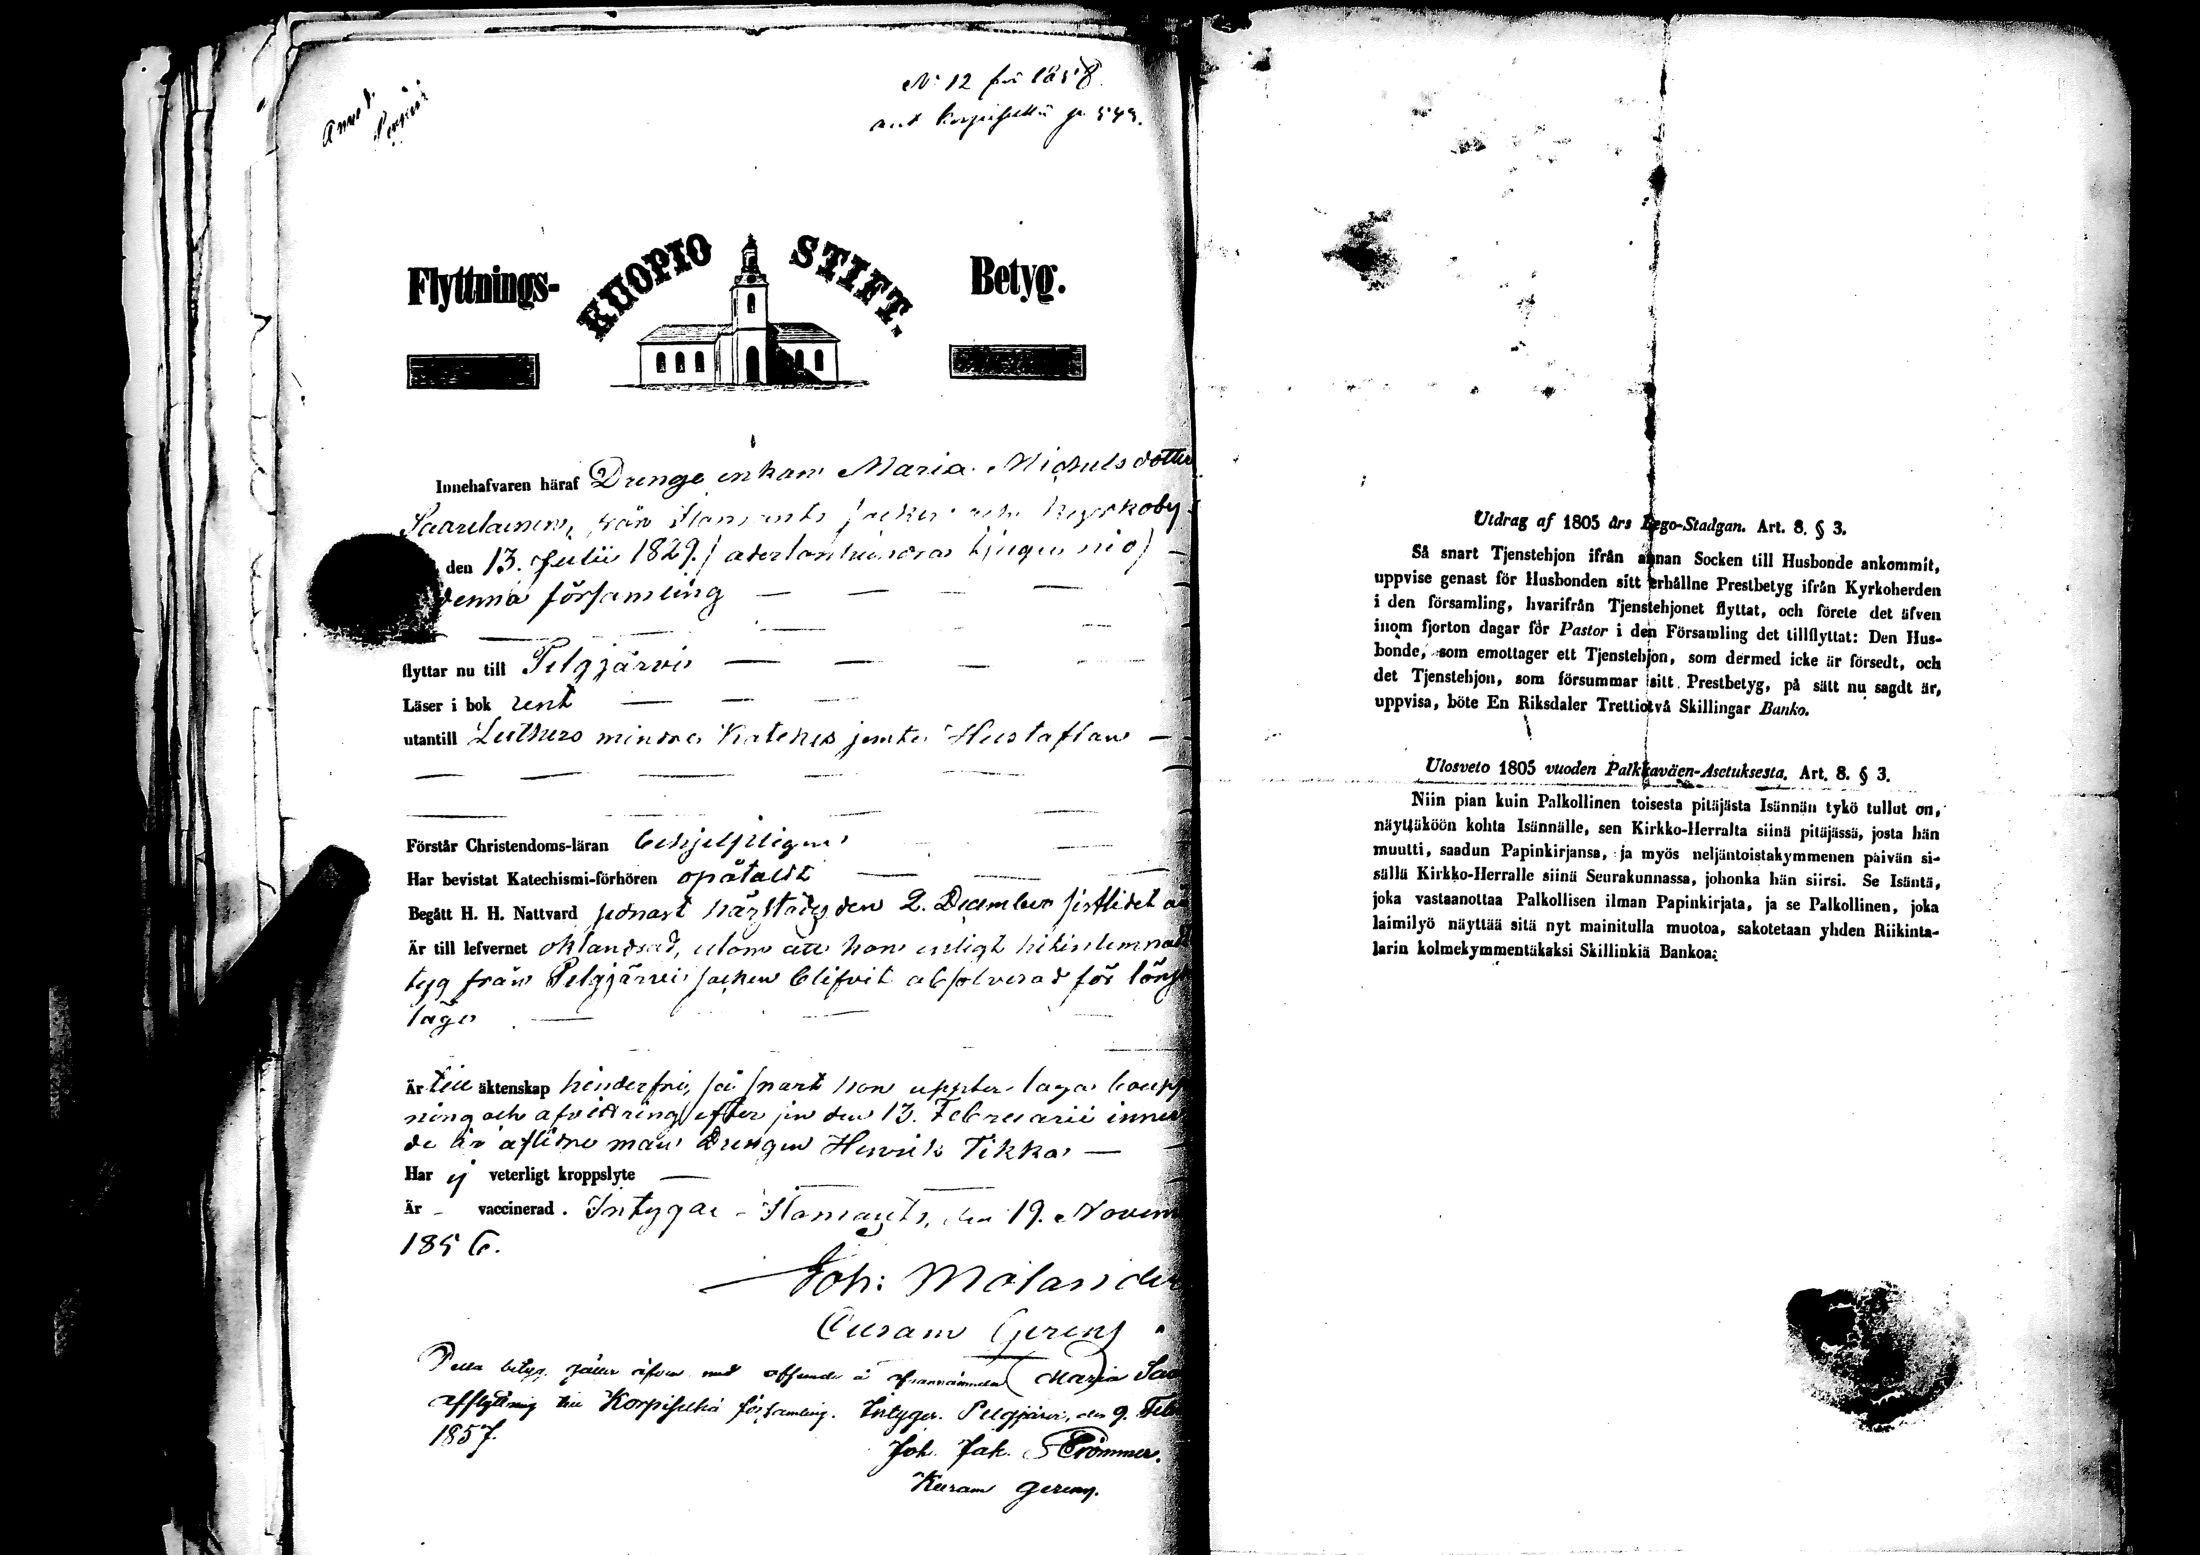 No 12 för 1858.
ant Korpiselkä p. 549.
Flyttnings- KUOPIO STIFT. Betyg.
Innehafvaren häraf Drenge enkan Maria Michelsdotter
Saarelainen, från Ilomants socken och kyrkoby
den 13. Julii 1829. (adertonhundra tjugu nio)
denna församling
flyttar nu till Pelgjärvi
Läser i bok rent
utantill Luthers mindre Kateches jemte Hustaflan
Förstår Christendoms-läran behjelpligen
Har bevistat Katechismi-förhören
Begått H. H. Nattvard sednast härstädes den 2. December sistlidet
Är till lefvernet oklandrad, utom att hon enligt hitinlemnadt
tyg från Pelgjärvi socken blifvit absolverad för lönsk
läge
Är till äktenskap hinderfri, så snart hon uppter laga
ning och afvittring efter sin den 13. Februarii inne
de år aflidne man Drengen Henrik Tikka
Har ej veterligt kroppslyte
Är vaccinerad. Intygar Ilomants, den 19. Novem
1856.
Joh: Molander
Curam Gerens
Detta betyg gäller äfven med afseende å ofvannämnda Maria Saa
afflyttning till Korpiselkä församling. Intygar. Pelgjärvi, den 9. Feb
1857.
Joh. Jak. Strömmer.
Kuram gerens.
Utdrag af 1805 års Lego-Stadgan. Art. 8. § 3.
Så snart Tjenstehjon ifrån annan Socken till Husbonde ankommit,
uppvise genast för Husbonden sitt erhållne Prestbetyg ifrån Kyrkoherden
i den församling, hvarifrån Tjenstehjonet flyttat, och förete det äfven
inom fjorton dagar för Pastor i den Församling det tillflyttat: Den Hus-
bonde, som emottager ett Tjenstehjon, som dermed icke är försedt, och
det Tjenstehjon, som försummar sitt Prestbetyg, på sätt nu sagdt är,
uppvisa, böte En Riksdaler Trettiotvå Skillingar Banko.
Ulosveto 1805 vuoden Palkkaväen-Asetuksesta. Art. 8. § 3.
Niin pian kuin Palkollinen toisesta pitäjästä Isännän tykö tullut on,
näyttäköön kohta Isännälle, sen Kirkko-Herralta siinä pitäjässä, josta hän
muutti, saadun Papinkirjansa, ja myös neljäntoistakymmenen päivän si-
sällä Kirkko-Herralle siinä Seurakunnassa, johonka hän siirsi. Se Isäntä,
joka vastaanottaa Palkollisen ilman Papinkirjata, ja se Palkollinen, joka
laimilyö näyttää sitä nyt mainitulla muotoa, sakotetaan yhden Riikinta-
larin kolmekymmentäkaksi Skillinkiä Bankoa.